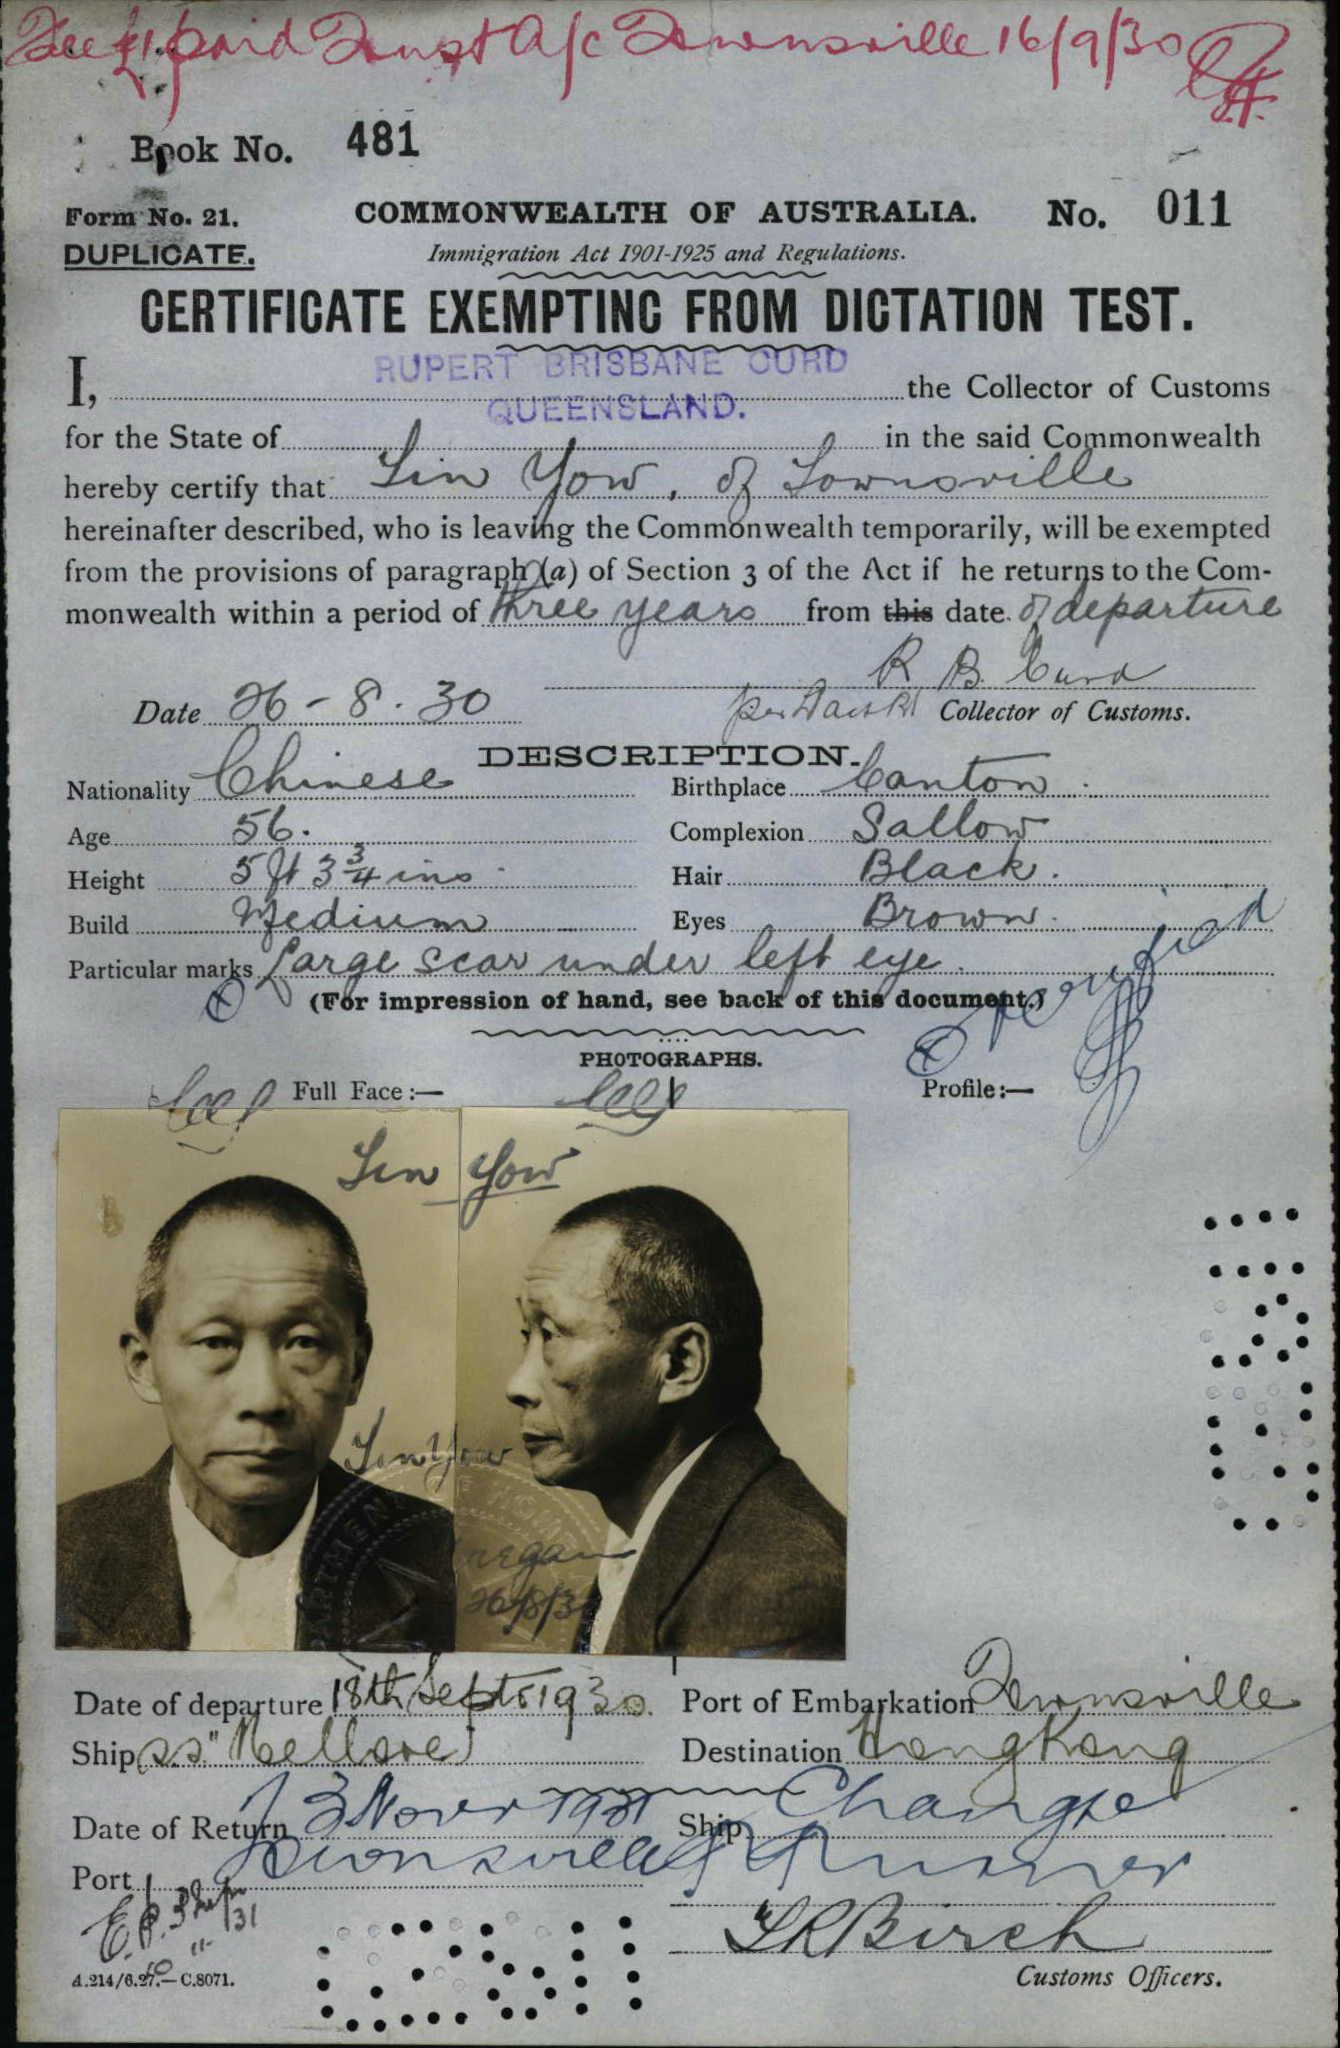 Fee £1 paid Trust A/c Townsville 16/9/30
Book No. 481
Form No. 21.
COMMONWEALTH OF AUSTRALIA.
No. 011
DUPLICATE.
Immigration Act 1901-1925 and Regulations.
CERTIFICATE EXEMPTING FROM DICTATION TEST.
RUPERT BRISBANE CURD
I, the Collector of Customs
QUEENSLAND.
for the State of in the said Commonwealth
hereby certify that Lin Yow, of Townsville
hereinafter described, who is leaving the Commonwealth temporarily, will be exempted
from the provisions of paragraph (a) of Section 3 of the Act if he returns to the Com-
monwealth within a period of three years from this date of departure
R B. Curd
Date 26-8.30
per Collector of Customs.
DESCRIPTION.
Nationality Chinese Birthplace Canton
Age 56. Complexion Sallow
Height 5 ft 3 3/4 ins Hair Black.
Build Medium Eyes Brown.
Particular marks Large scar under left eye.
(For impression of hand, see back of this document.)
PHOTOGRAPHS.
Full Face:—
Profile:—
Lin Yow
Lin Yow
26/8/30
Date of departure 18th Sept. 1930. Port of Embarkation Townsville
Ship s.s. "Nellore" Destination Hong Kong
Date of Return 13 Novr 1931 Ship Changte
Port Townsville
LR Birch
Customs Officers.
A.214/6.27.—C.8071.